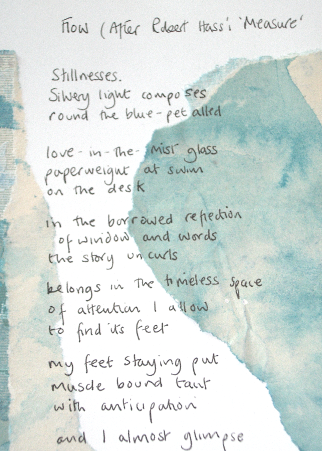 Flow (After Robert Hass's 'Measure'
Stillnesses.
Silvery light composes
round the blue-petalled
love-in-the-mist glass
paperweight at swim
on the desk
in the borrowed reflection
of window and words
the story uncurls
belongs in the timeless space
of attention I allow
to find its feet
my feet staying put
muscle bound taut
with anticipation
and I almost glimpse